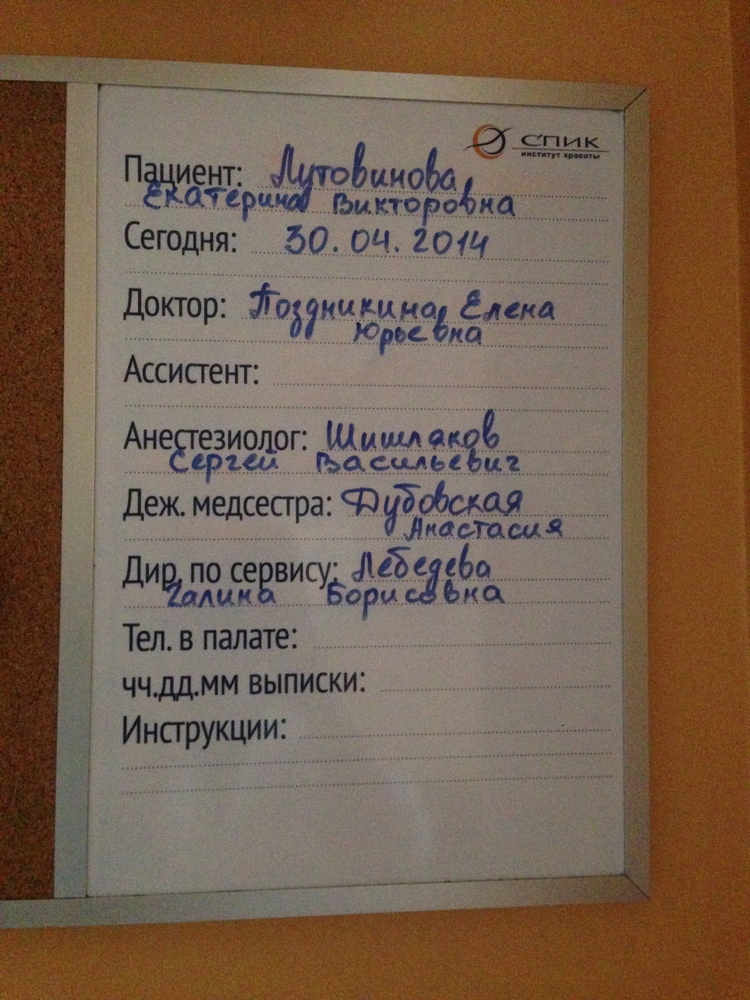 СПИК
институт красоты
Пациент: Лутовинова
Екатерина Викторовна
Сегодня: 30.04.2014
Доктор: Поздникина Елена
Юрьевна
Ассистент:
Анестезиолог: Шишлаков
Сергей Васильевич
Деж. медсестра: Дубовская
Анастасия
Дир. по сервису: Лебедева
Галина Борисовна
Тел. в палате:
чч.дд.мм выписки:
Инструкции: